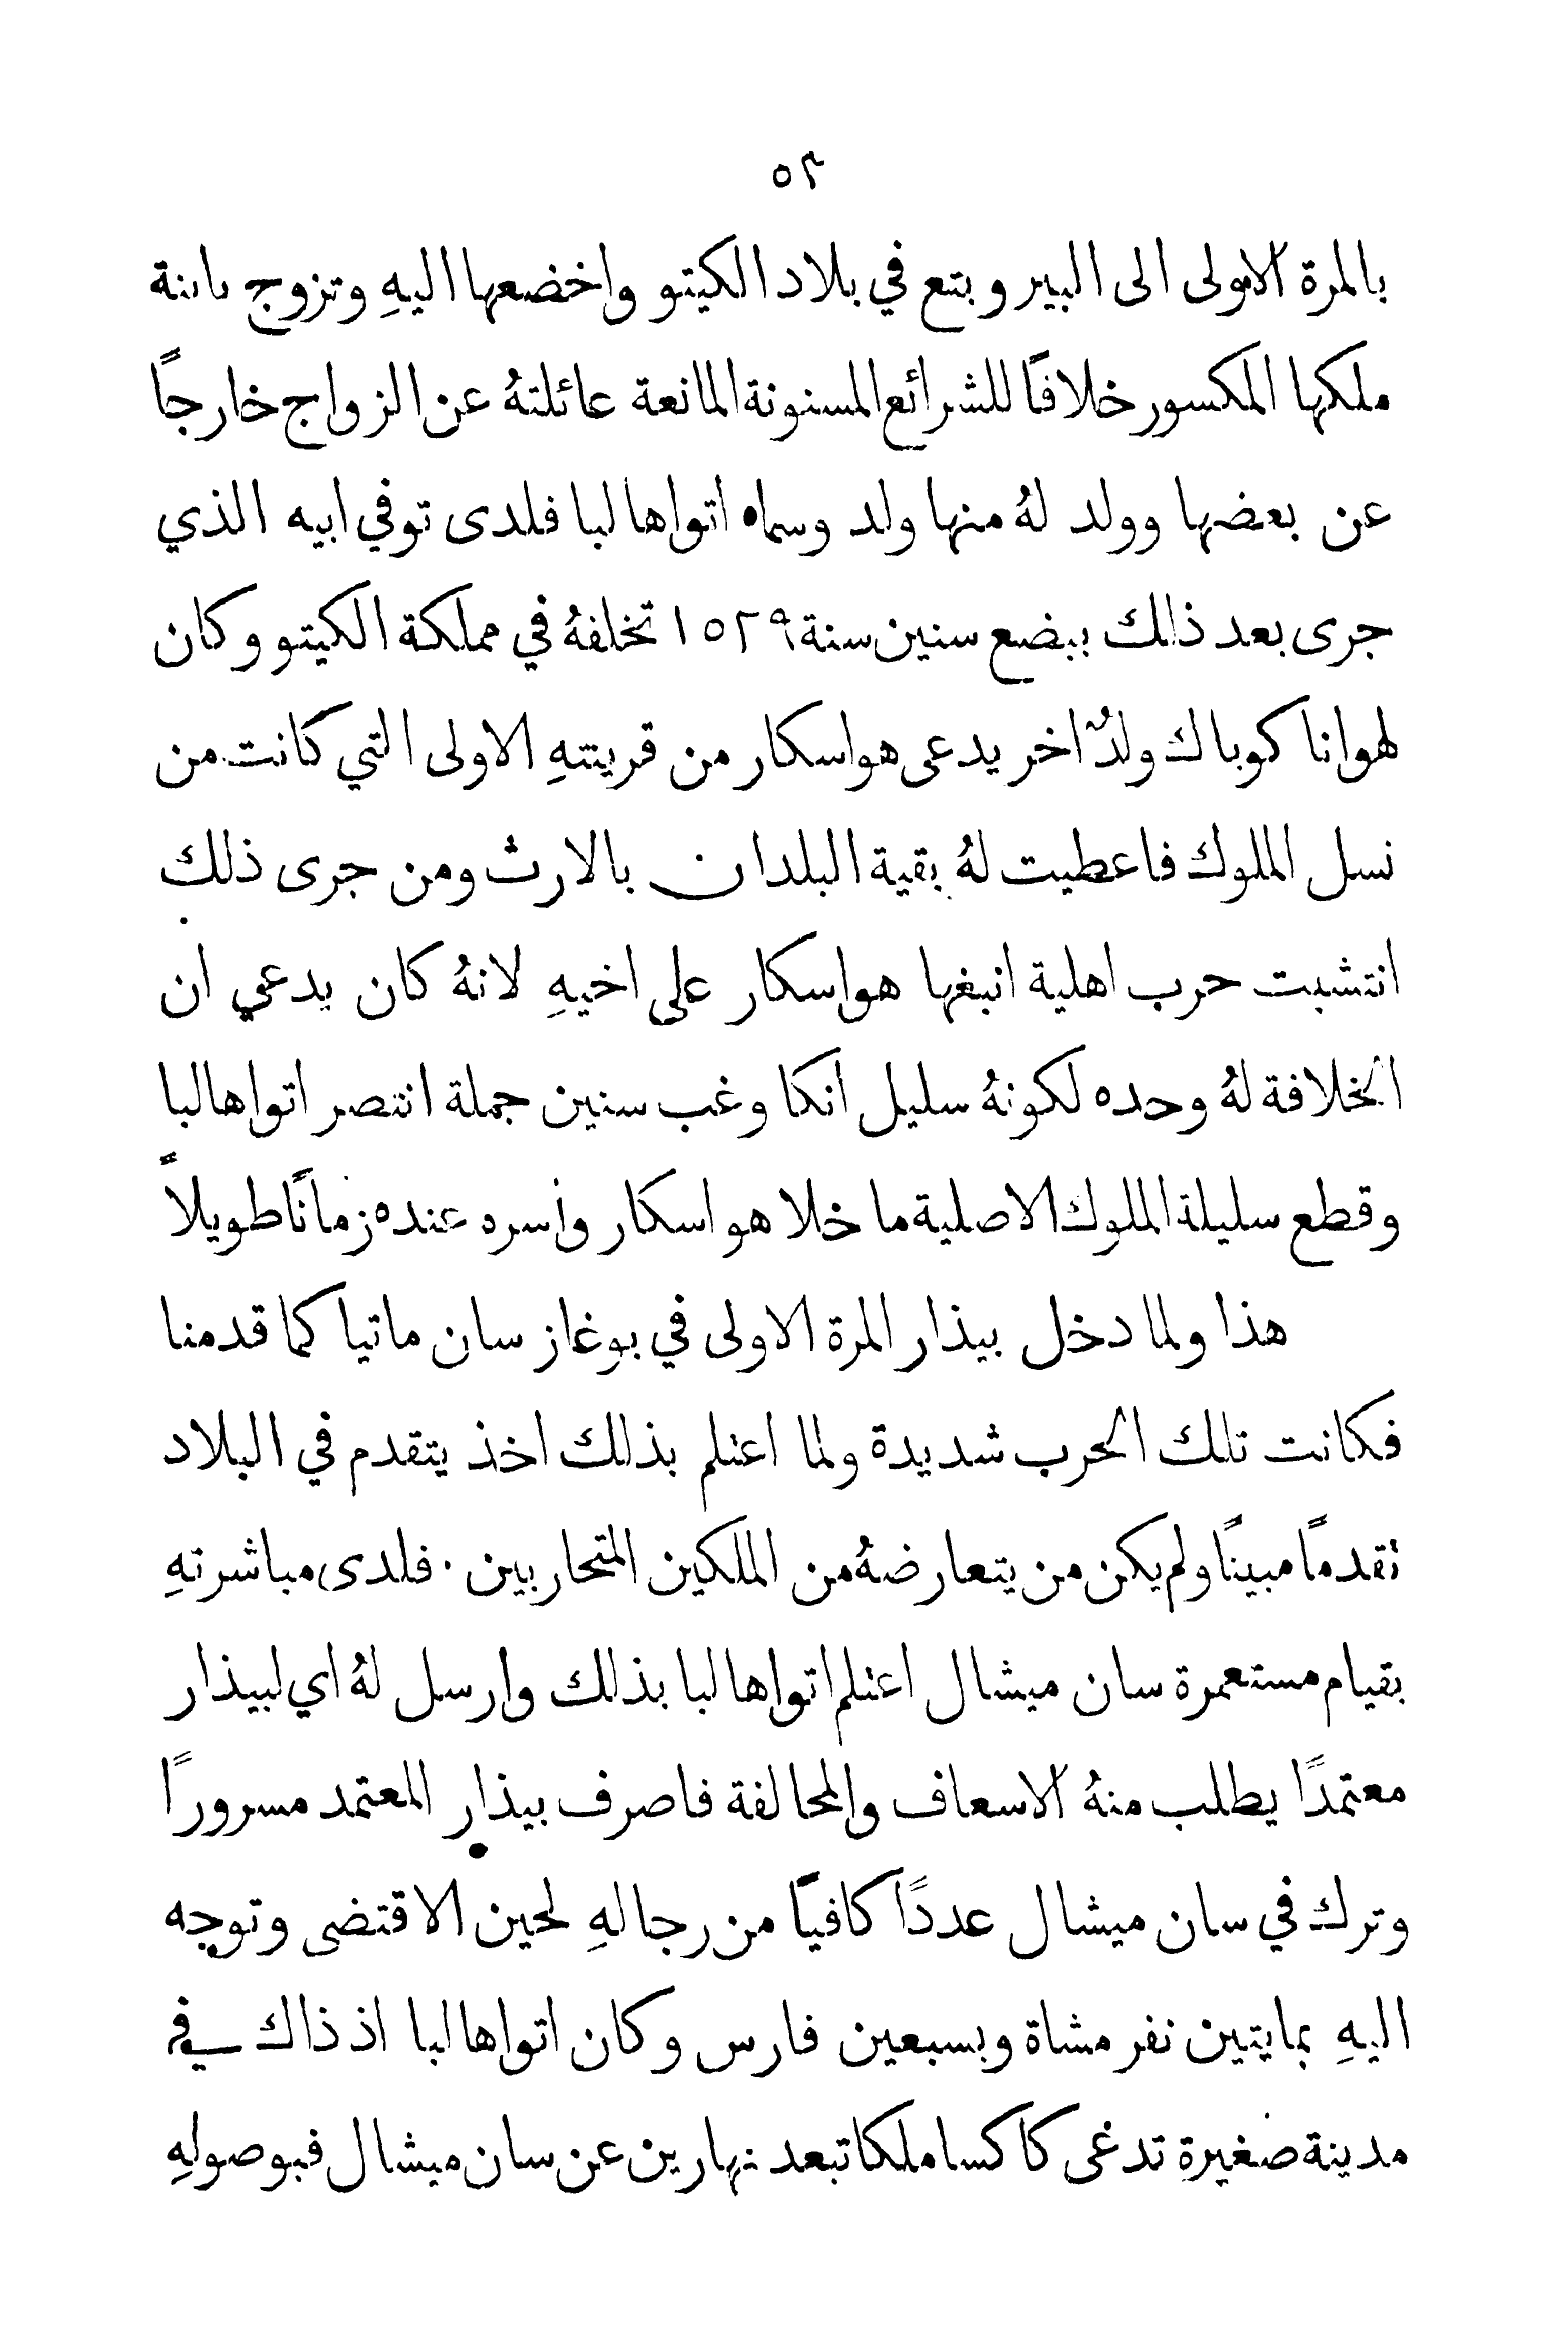 ٥٣
بالمرة الاولى الى البيرو بتع في بلاد الكيتو واخضعها اليهِ وتزوج بابنة
ملكها المكسور خلافًا للشرائع المسنونة المانعة عائلتهُ عن الزواج خارجًا
عن بعضها وولد لهُ منها ولد وسماه اتواهالبا فلدى توفي ابيه الذي
جرى بعد ذلك ببضع سنين سنة ١٥٢٩ تخلفهُ في مملكة الكيتو وكان
لهوانا كوباك ولدٌ اخر يدعى هواسكار من قرينتهِ الاولى التي كانت من
نسل الملوك فاعطيت لهُ بقية البلدان بالارث ومن جرى ذلك
انتشبت حرب اهلية انبغها هواسكار على اخيهِ لانهُ كان يدعي ان
الخلافة لهُ وحده لكونهُ سليل انكا وغب سنين جملة انتصر اتواهالبا
وقطع سليلة الملوك الاصلية ما خلا هواسكار واسره عنده زمانًا طويلاً
هذا ولما دخل بيذار المرة الاولى في بوغاز سان ماتيا كما قدمنا
فكانت تلك الحرب شديدة ولما اعتلم بذلك اخذ يتقدم في البلاد
تقدمًا مبينًا ولم يكن من يتعارضهُ من الملكين المتحاربين . فلدى مباشرتهِ
بقيام مستعمرة سان ميشال اعتلم اتواهالبا بذلك وارسل لهُ اي لبيذار
معتمدًا يطلب منهُ الاسعاف والمحالفة فاصرف بيذار المعتمد مسرورًا
وترك في سان ميشال عددًا كافيًا من رجالهِ لحين الاقتضى وتوجه
اليهِ بمايتين نفر مشاة وبسبعين فارس وكان اتواهالبا اذ ذاك في
مدينة صغيرة تدعى كاكساملكا تبعد نهارين عن سان ميشال فبوصولهِ